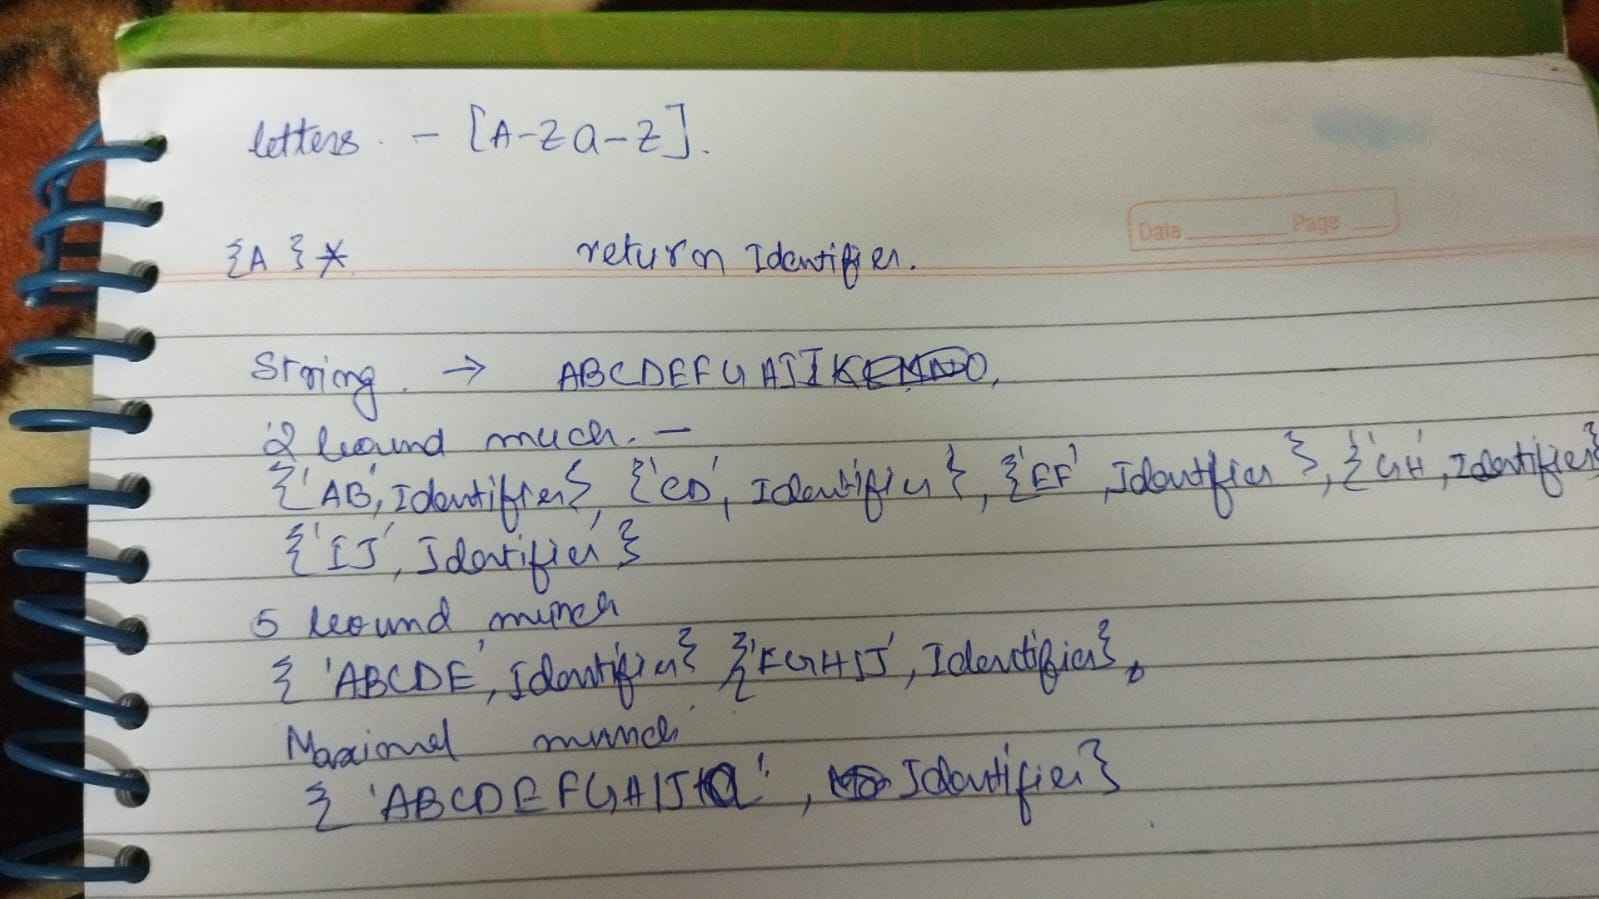 letters. - [A-Za-z].
Date Page
{A}* return Identifier.
String. → ABCDEFGHIJK
2 bound much. -
{'AB', Identifier}, {'CD', Identifier}, {'EF', Identifier}, {'GH', Identifier}
{'IJ', Identifier}
5 bound munch
{'ABCDE', Identifier} {'FGHIJ', Identifier},
Maximal munch
{'ABCDEFGHIJ', Identifier}